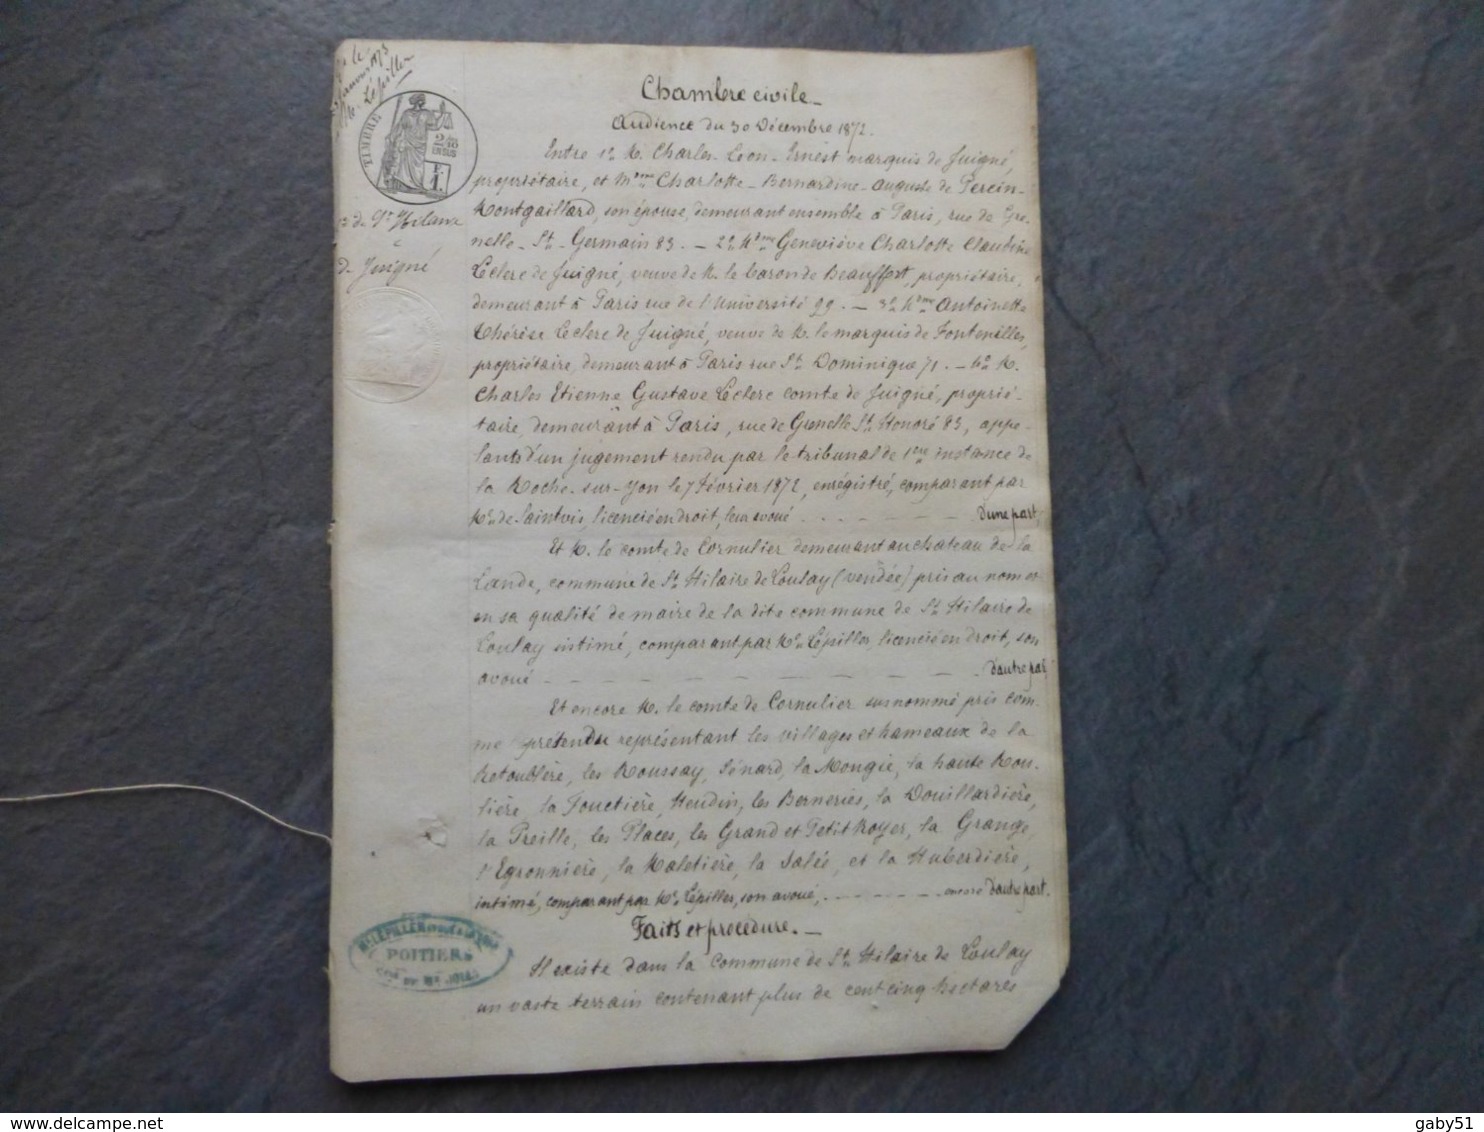 Janvier 1873
Lépiller
TIMBRE
2/10
EN SUS
F.
1.
de St Hilaire
c
de Juigné
Chambre civile_
Audience du 30 Décembre 1872.
Entre 1° M. Charles Léon Ernest marquis de Juigné,
propriétaire, et Mme Charlotte-Bernardine-Auguste de Percin-
Montgaillard, son épouse, demeurant ensemble à Paris, rue de Gre
nelle-St-Germain 83. _ 2° Mme Geneviève Charlotte Claudine
Leclerc de Juigné, veuve de M. le baron de Beauffort, propriétaire,
demeurant à Paris rue de l'Université 99. _ 3° Mme Antoinette
Thérèse Leclerc de Juigné, veuve de M. le marquis de Fontenilles,
propriétaire, demeurant à Paris rue St Dominique 71. _ 4° M.
Charles Etienne Gustave Leclerc comte de Juigné, proprié-
taire, demeurant à Paris, rue de Grenelle St Honoré 83, appe-
lants d'un jugement rendu par le tribunal de 1ère instance de
la Roche-sur-Yon le 7 février 1872, enrégistré, comparant par
Me de Saintvis, licencié en droit, leur avoué _ _ _ d'une part
Et M. le comte de Cornulier demeurant au chateau de la
Lande, commune de St Hilaire de Loulay (vendée) pris au nom et
en sa qualité de maire de la dite commune de St Hilaire de
Loulay intimé, comparant par Me Lépiller, licencié en droit, son
avoué _ _ _ d'autre part
Et encore M. le comte de Cornulier susnommé pris com
me prétendu représentant les villages et hameaux de la
Retoublère, les Roussay, Sénard, la Mongie, la haute Rou-
lière la Fouctière, Heudin, les Berneries, la Douillardière,
la Preille, les Places, les Grand et Petit Royer, la Grange,
l'Egronnière, la Maletière, la Salée, et la Huberdière,
intimé, comparant par Me Lépiller, son avoué, _ _ _ encore d'autre part.
Faits et procédure._
Il existe dans la commune de St Hilaire de Loulay
un vaste terrain contenant plus de cent cinq hectares
POITIERS
gaby51